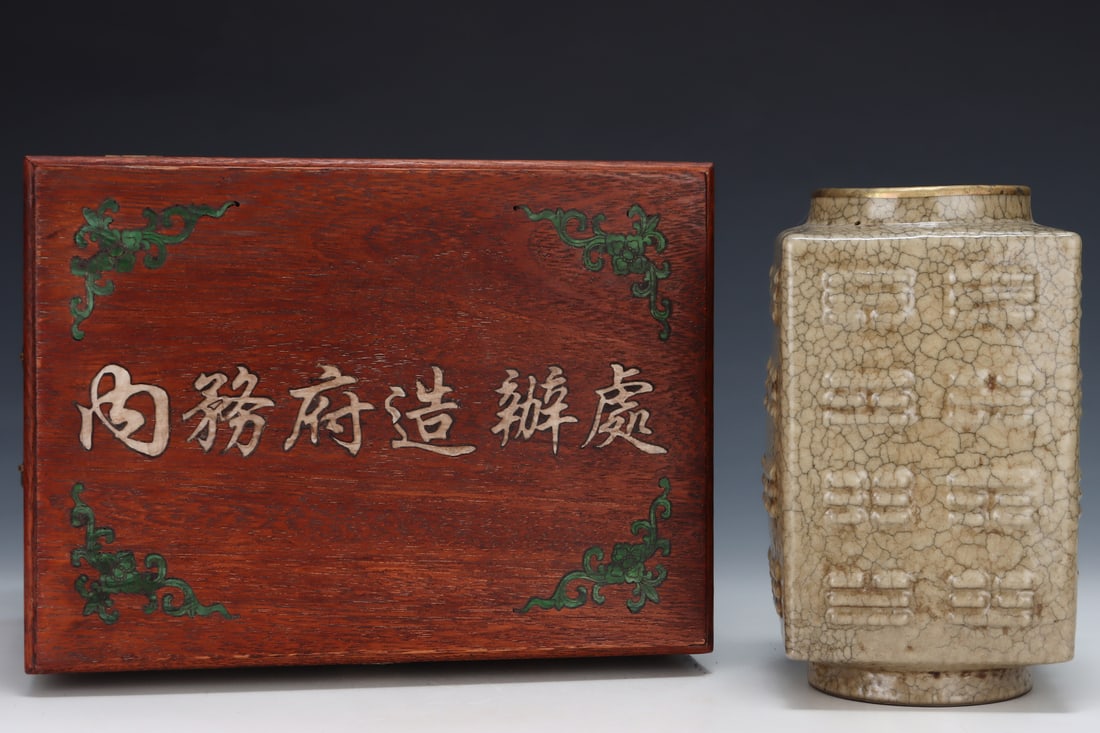 内務府造辦處